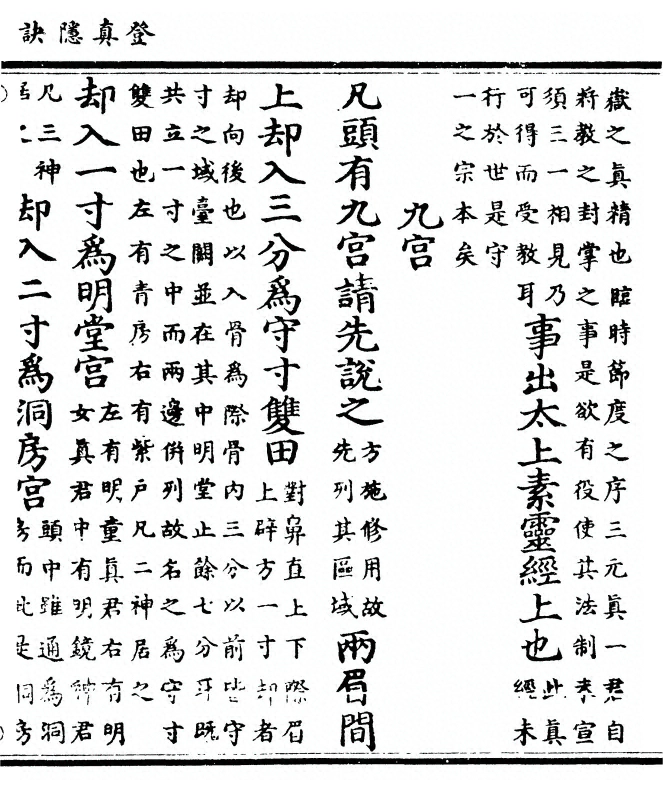 登真隱訣
嶽之真精也臨時節度之序三元真一君自
將教之封掌之事是欲有役使其法制奉宣
須三一相見乃
可得而受教耳
事出太上素靈經上也
此真
經未
行於世是守
一之宗本矣
九宮
凡頭有九宮請先說之
方施修用故
先列其區域
兩眉間
上却入三分爲守寸雙田
對鼻直上下際眉
上辟方一寸却者
却向後也以入骨爲際骨內三分以前皆守
寸之域臺闕並在其中明堂止餘七分耳既
共立一寸之中而兩邊併列故名之爲守寸
雙田也左有青房右有紫戶凡二神居之
却入一寸爲明堂宮
左有明童真君右有明
女真君中有明鏡神君
凡三神
居之
却入二寸爲洞房宮
頭中雖通爲洞
房而此是洞房